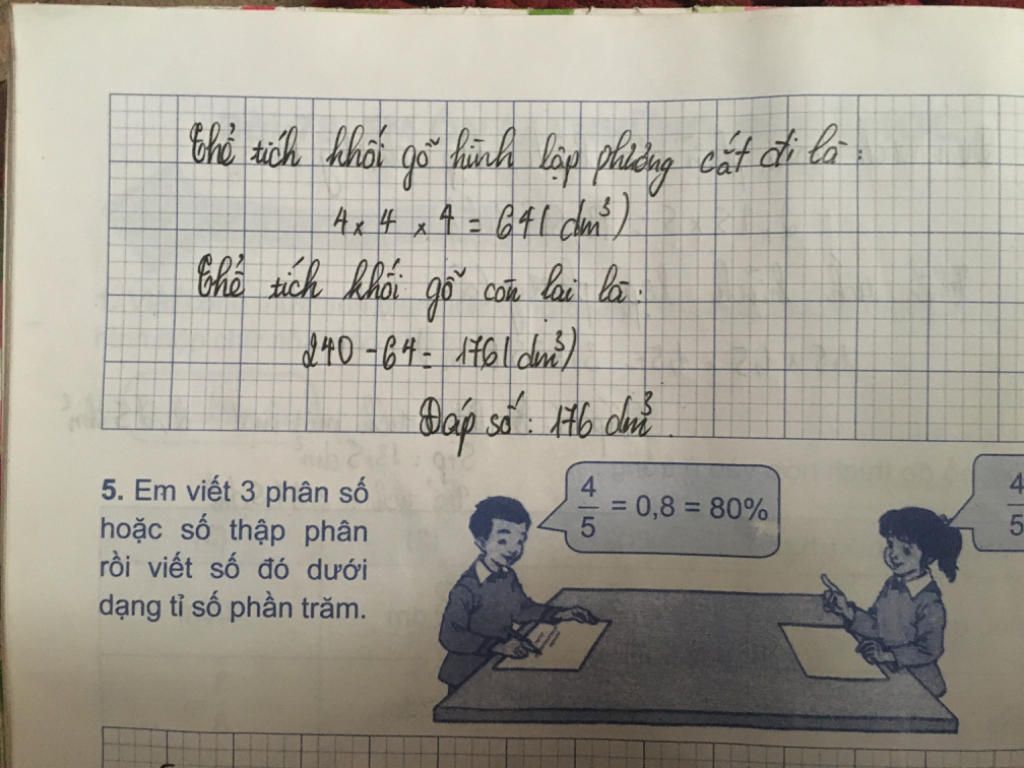 Thể tích khối gỗ hình lập phương cắt đi là:
4 x 4 x 4 = 64 ( dm³)
Thể tích khối gỗ còn lại là:
240 - 64 = 176 ( dm³)
Đáp số: 176 dm³.
5. Em viết 3 phân số
hoặc số thập phân
rồi viết số đó dưới
dạng tỉ số phần trăm.
4/5 = 0,8 = 80%
4/5